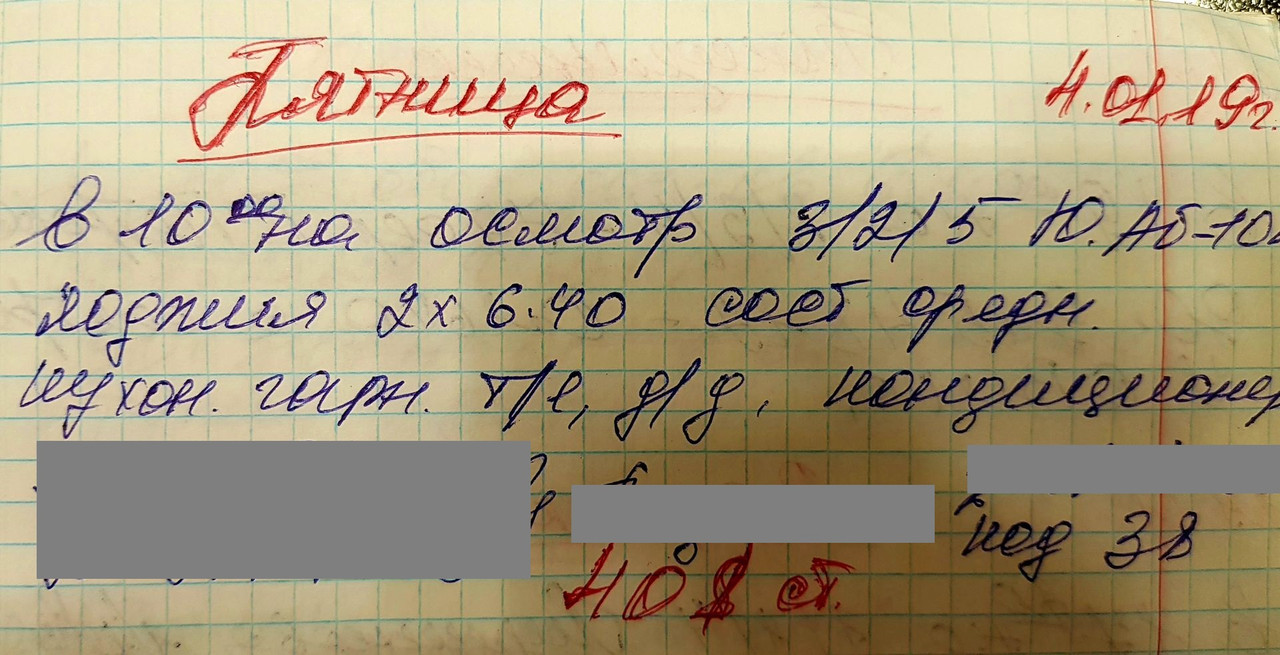 Пятница 4.01.19г.
в 10 00 на осмотр 3/2/5 Ю. Аб-10
лоджия 2х6.40 сост средн.
кухон. гарн. т/е, д/д, кондиционер
код 38
40$ ст.